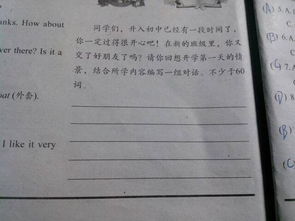 anks. How about
ver there? Is it a
oat (外套).
I like it very
同学们，升入初中已经有一段时间了，
你一定过得很开心吧！在新的班级里，你又
交了好朋友了吗？请你回想开学第一天的情
景，结合所学内容编写一组对话。不少于60
词。